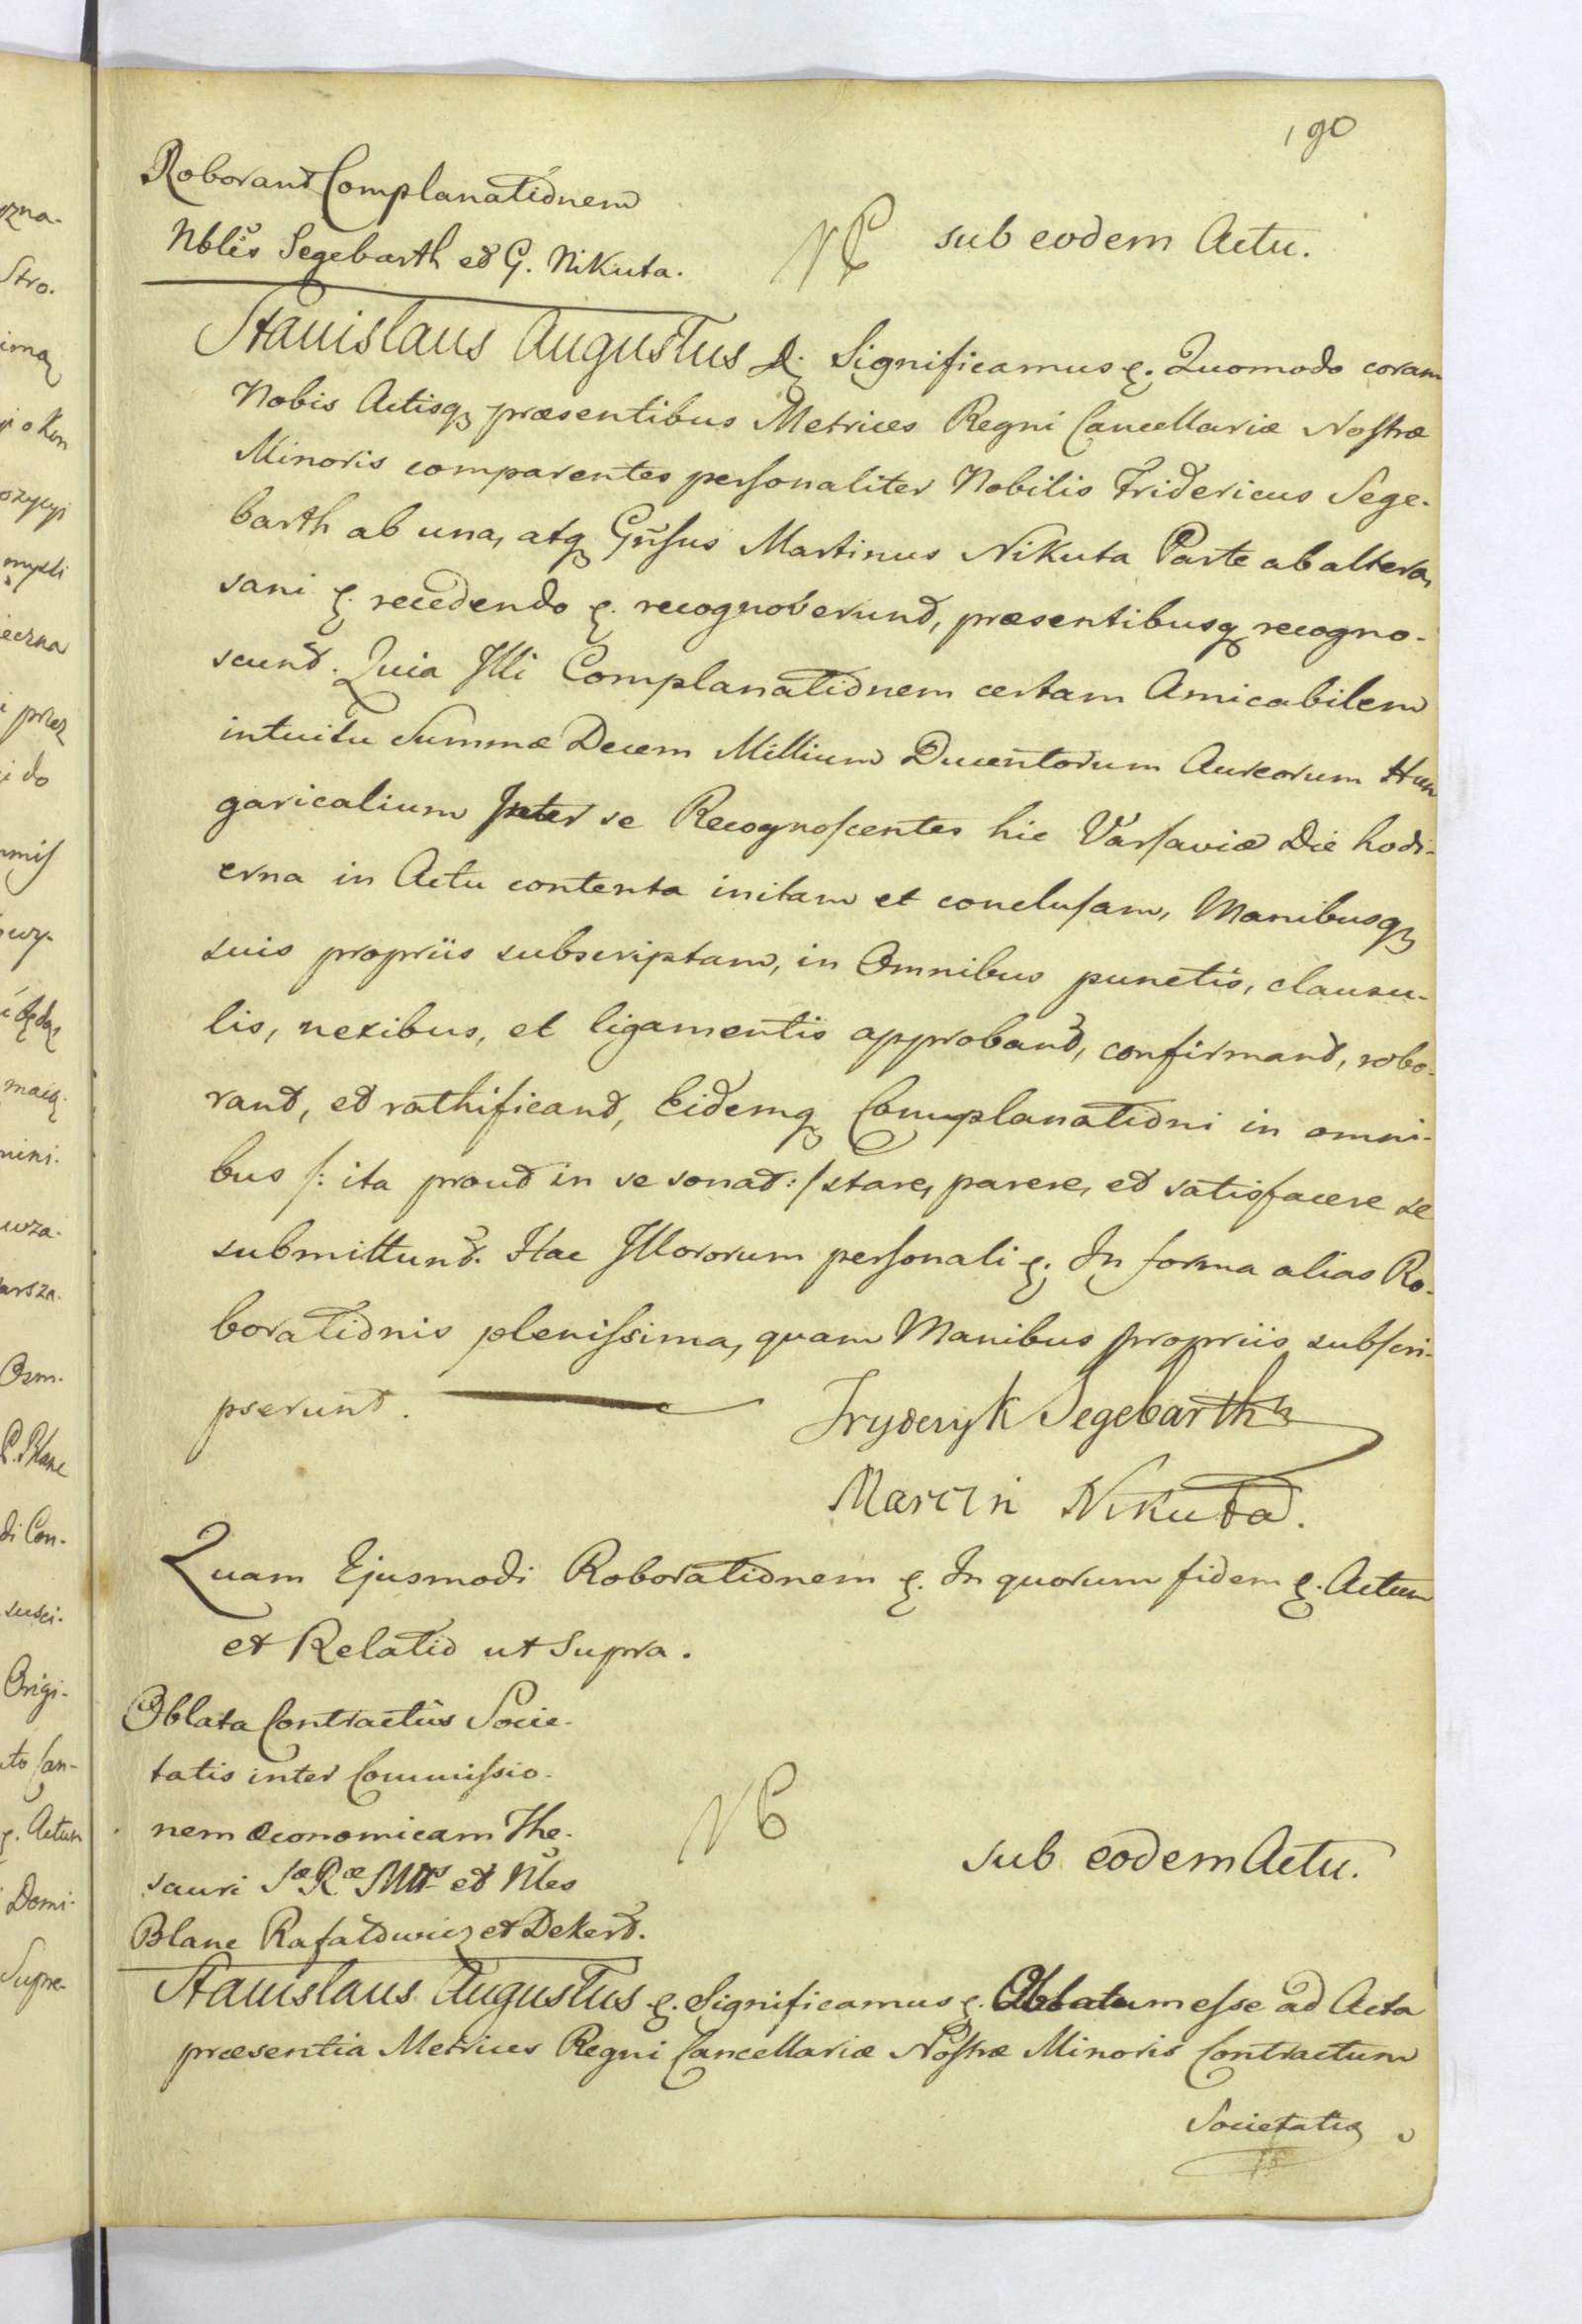 190
Roborant Complanationem
Nbles Segebarth et G. Nikuta.
sub eodem Actu.
Stanislaus Augustus &. Significamus &. Quomodo coram
Nobis Actisq præsentibus Metrices Regni Cancellariæ Nostræ
Minoris comparentes personaliter Nobilis Fridericus Sege-
barth ab una, atq Gnsus Martinus Nikuta Parte ab altera,
sani &. recedendo &. recognoverunt, præsentibusq recogno-
scunt. Quia Illi Complanationem certam Amicabilem
intuitu Summæ Decem Millium Ducentorum Aureorum Hun
garicalium Inter se Recognoscentes hic Varsaviæ Die hodi-
erna in Actu contenta initam et conclusam, Manibusq
suis propriis subscriptam, in Omnibus punctis, clausu-
lis, nexibus, et ligamentis approbant, confirmant, robo-
rant, et rathificant, Eidemq Complanationi in omni-
bus /: ita prout in se sonat :/ stare, parere, et satisfacere se
submittunt. Hac Illororum personali &. In forma alias Ro-
borationis plenissima, quam Manibus propriis subscri-
pserunt.
Fryderyk Segebarth
Marcin Nikuta.
Quam Ejusmodi Roborationem &. In quorum fidem &. Actum
et Relatio ut Supra.
Oblata Contractus Socie-
tatis inter Commissio-
nem œconomicam The-
sauri Sæ Ræ Mttis et Nles
Blanc Rafałowicz et Dekert.
sub eodem Actu.
Stanislaus Augustus &. Significamus &. Oblatum esse ad Acta
præsentia Metrices Regni Cancellariæ Nostræ Minoris Contractum
Societatis